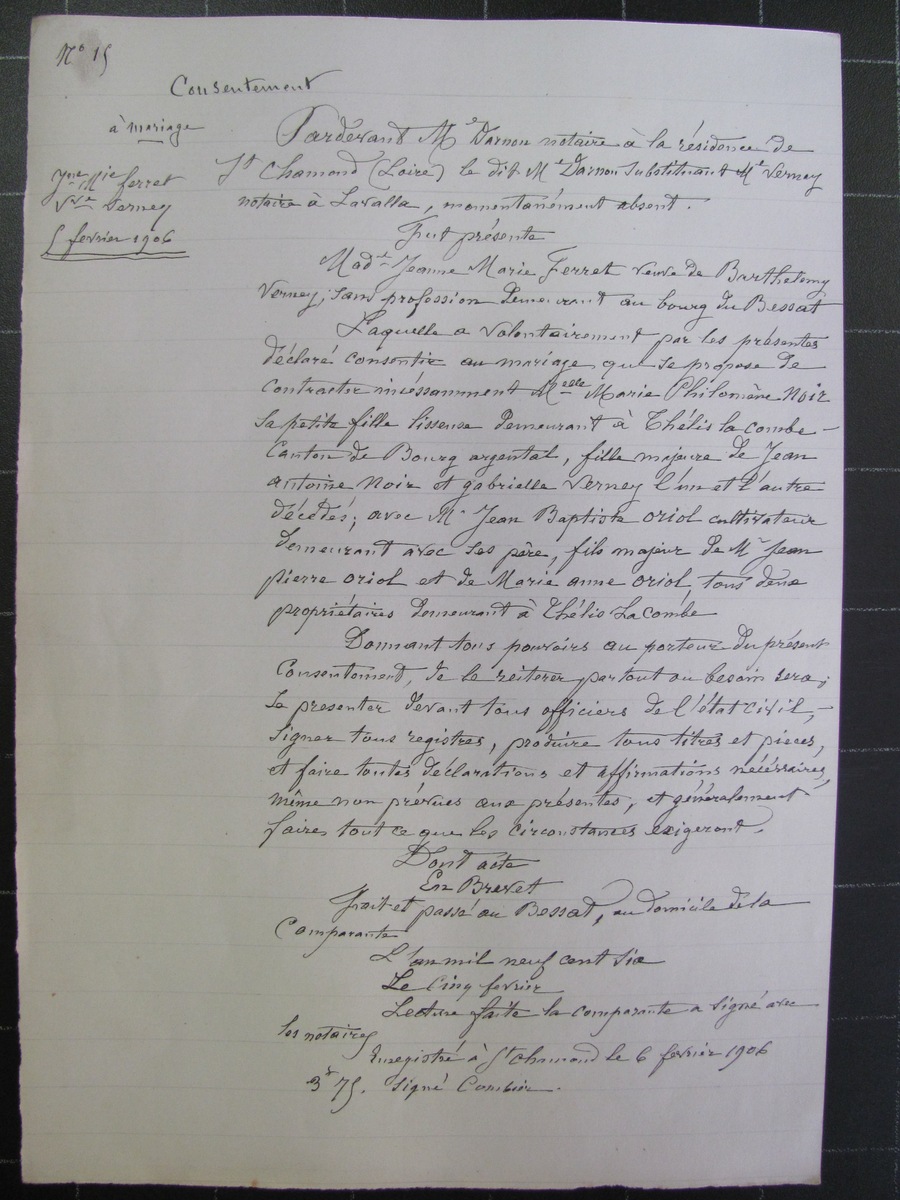 N° 15
Consentement
à mariage
Jne Mie ferret
Vve Verney
5 fevrier 1906
Pardevant Me Darnon notaire à la résidence de
St Chamond (Loire) le dit Me Darnon Substituant Me Verney
notaire à Lavalla, momentanément absent.
Fut présente
Made Jeanne Marie Ferret veuve de Barthelemy
Verney, sans profession demeurant au bourg du Bessat
Laquelle a volontairement par les présentes
déclaré consentir au mariage que se propose de
contracter incéssamment Melle Marie Philomène Noir
sa petite fille lisseuse demeurant à Thélis la combe -
Canton de Bourg argental, fille majeure de Jean
antoine Noir et gabrielle Verney l'un et l'autre
décédés; avec Mr Jean Baptiste Oriol cultivateur
demeurant avec ses père, fils majeur de Mr Jean
pierre Oriol et de Marie anne Oriol, tous deux
propriétaires demeurant à Thélis La Combe
Donnant tous pouvoirs au porteur du présent
Consentement, de le reiterer partout ou besoin sera;
Se presenter devant tous officiers de l'état civil, -
Signer tous registres, produire tous titres et pieces,
et faire toutes déclarations et affirmations nécéssaires,
même non prévues aux présentes, et généralement
faire tout ce que les circonstances exigeront.
Dont acte
En Brevet
Fait et passé au Bessat, au domicile de la
Comparante
L'an mil neuf cent six
Le Cinq fevrier
Lecture faite la comparante a signé avec
les notaires
Enregistré à St chamond le 6 fevrier 1906
3f 75. Signé Combier.